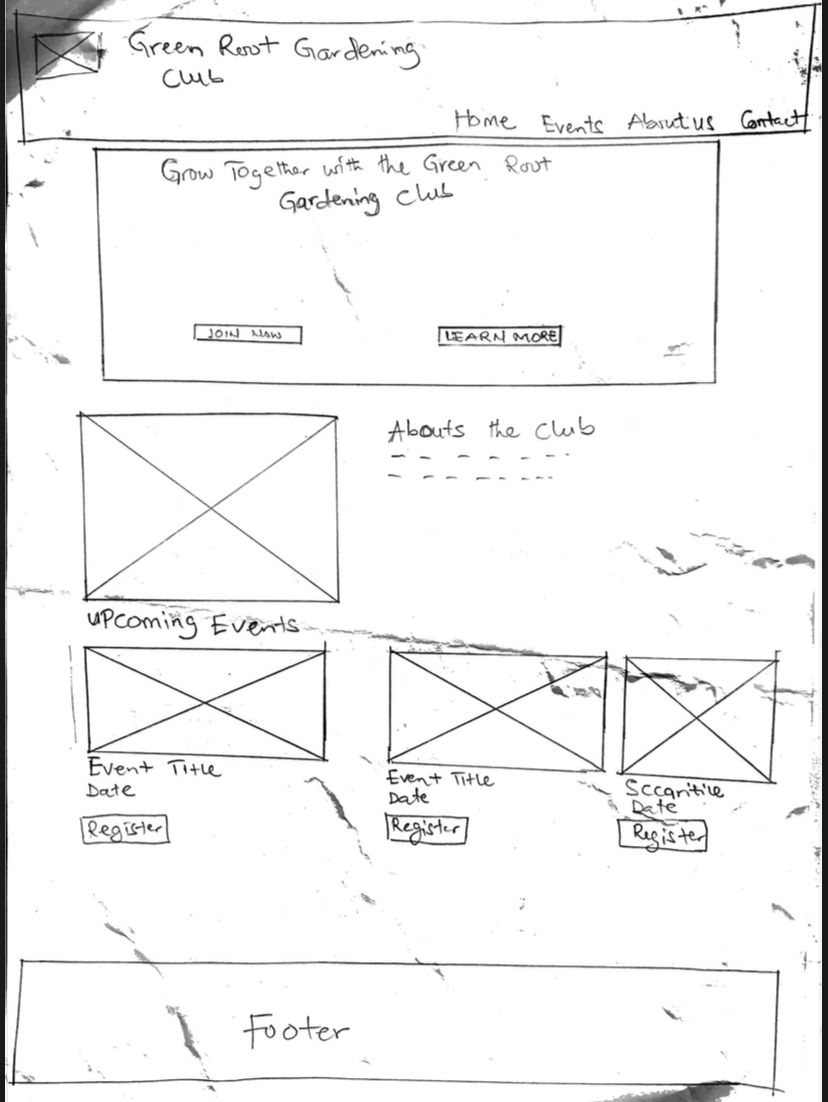 Green Root Gardening
Club
Home Events About us Contact
Grow Together with the Green Root
Gardening Club
JOIN NOW
LEARN MORE
Abouts the Club
UPcoming Events
Event Title
Date
Register
Event Title
Date
Register
Date
Register
Footer